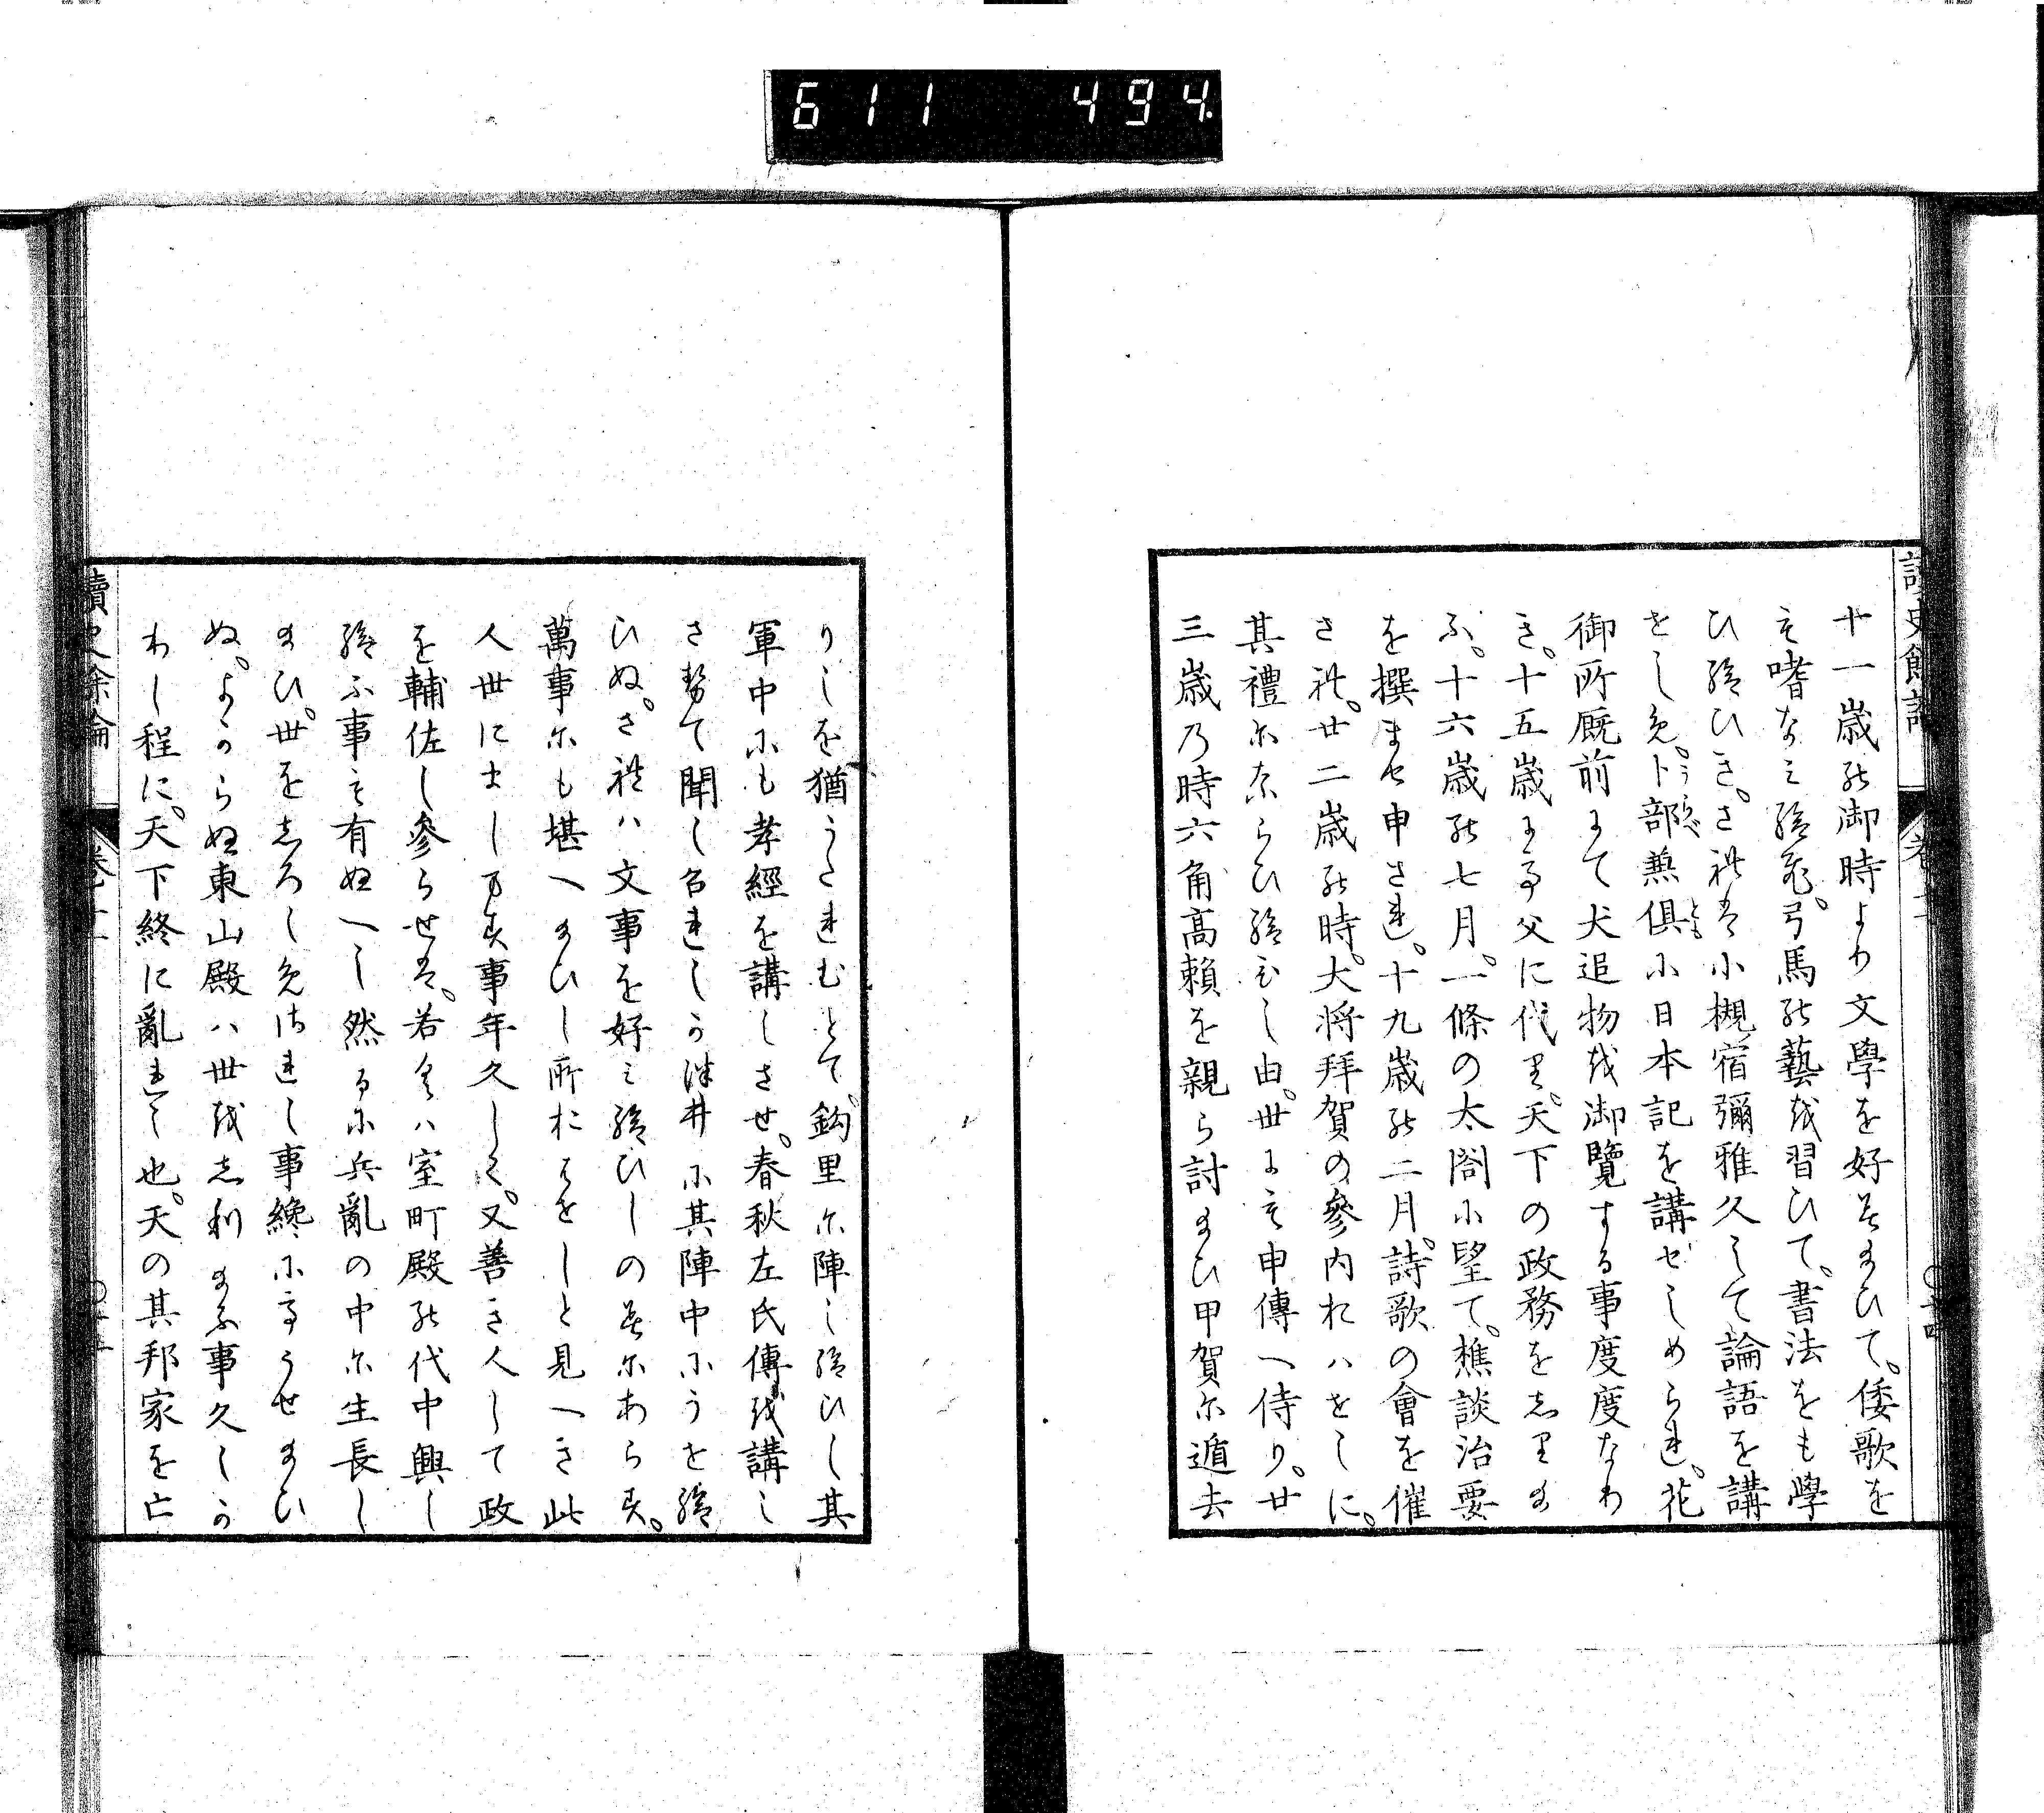 611 494.
讀史餘論 卷十一
十一歳の御時より文學を好ませたまひて。倭歌を
も嗜なミ給ふ。弓馬の藝を習ひて。書法をも學
ひ給ひき。されは小槻宿彌雅久して論語を講
をしめ。卜部兼倶に日本記を講ぜしめられ。花
うらべ かねとも
御所厩前にて犬追物を御覽する事度度なり
き。十五歳にて父に代り。天下の政務をしりた
ふ。十六歳の七月。一條の太閤に望て。樵談治要
を撰ませ申され。十九歳の二月。詩歌の會を催
され。廿二歳の時。大将拜賀の參内おはをしに。
其禮にならひ給ひし由。世にも申傳へ侍り。廿
三歳乃時六角高頼を親ら討たひ甲賀に遁去
りしを猶うたれむとて。鈎里に陣し給ひし其
軍中にも孝經を講しさせ。春秋左氏傳を講し
させて聞し召れしか津井に其陣中にうせ給
ひぬ。されハ文事を好ミ給ひしのミにあらす。
萬事にも堪へたまひし所おはをしと見へき此
人世にまします事年久しく。又善き人して政
を輔佐し參らせは。若くハ室町殿の代中興し
給ふ事も有ぬへし然るに兵亂の中に生長し
たまひ。世をしろしめされし事纔にてうせたまひ
ぬ。よからぬ東山殿ハ世をしりたまふ事久しか
りし程に。天下終に亂れし也。天の其邦家を亡
讀史余論 卷十一